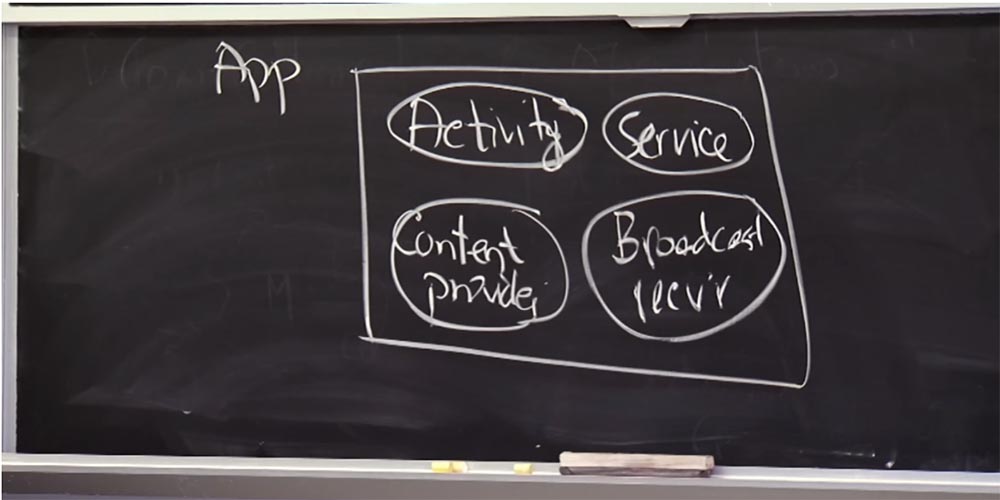 App
Activity
Service
Content
provider
Broadcast
recvir